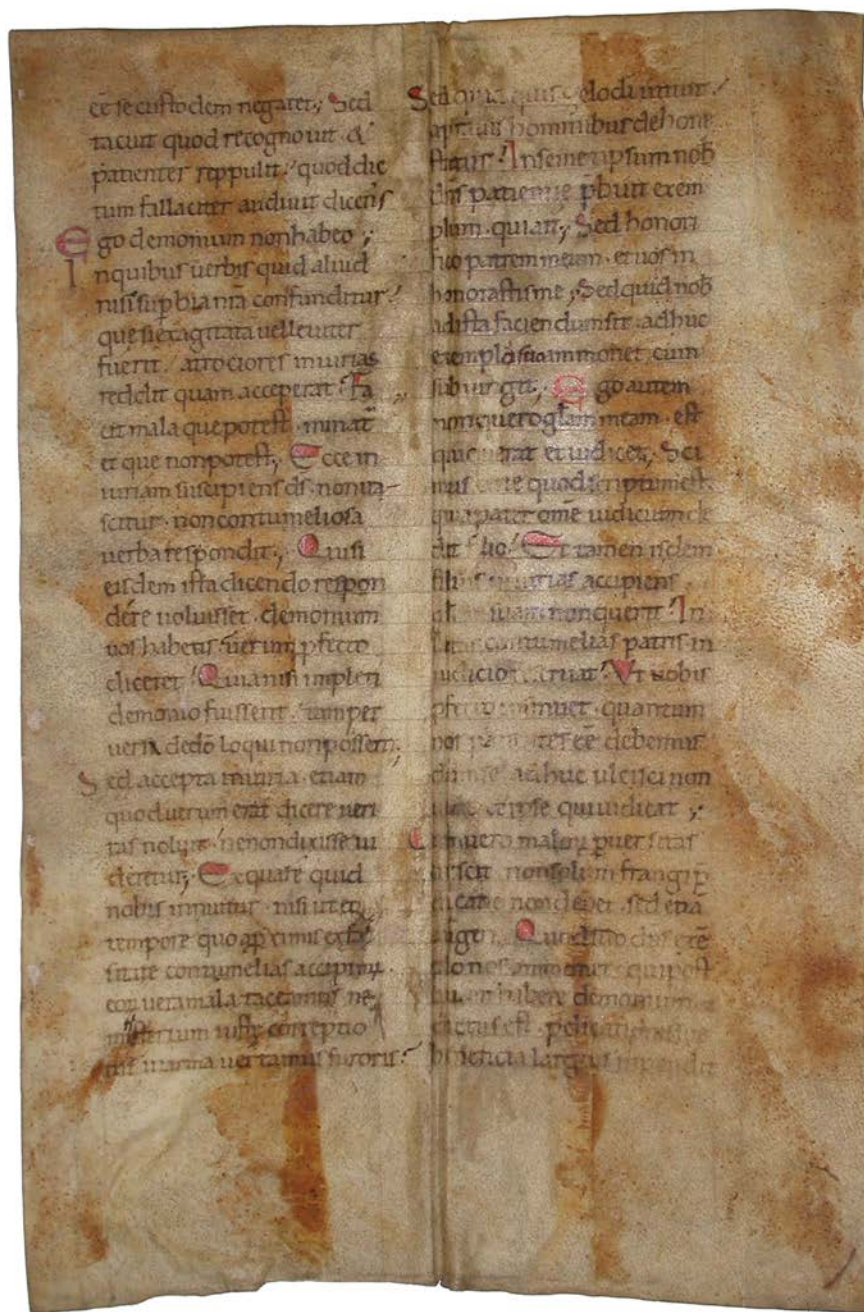 eē se custodem negaret; Sed
tacuit quod recognouit · &
patienter reppulit · quod dic
tum fallaciter audiuit dicens
Ego demonium non habeo ;
In quibus uerbis quid aliud
nisi supbia nr̄a confunditur ·
que si exagitata uel leuiter
fuerit / atrociores iniurias
reddit quam acceperat · Fa
cit mala que potest · minat̄
et que non potest; Ecce in
iuriam suscipiens ds̄ · non ira
scitur · non contumeliosa
uerba respondit; Qui si
eisdem ista dicendo respon
dere uoluisset · demonium
uos habetis · uerum pfecto
diceret · Quia nisi impleti
demonio fuissent · tam per
uersa de dō loqui non possent;
Sed accepta iniuria · etiam
quod uerum erat dicere ueri
tas noluit · ne non dixisse ui
deretur; Ex qua re quid
nobis innuitur · nisi ut eo
tempore quo a pximis ex
falsitate contumelias accipim
eorum uera mala taceamus ne
ministerium iuste correptio
nis in arma uertamus furoris ·
Sed quia quisquis zelo di utitur
a prauis hominibus dehone
statur · In semetipso nob
dn̄s patientie p̄buit exem
plum · qui ait; Sed honori
fico patrem meum · et uos in
honorastis me; Sed quid nob
ad ista faciendum sit · adhuc
exemplo suo ammonet, cum
subiungit; Ego autem
non quero gl̄am meam · est
qui querat et iudicet; Sci
mus certe quod scriptum est
quia pater om̄e iudicium de
dit filio · Et tamen isdem
filius iniurias accipiens
gl̄am suam non querit · In
latas contumelias patris in
iudicio reseruat · Vt nobis
pfecto innuet · quantum
nos patientes eē debemus
dum se adhuc ulcisci non
uult et ipse qui iudicat ;
Cum uero malorum peruersitas
crescit non solum frangi p̄
dicatio non debet · sed etiā
augeri · Quod suo dn̄s exē
plo nos ammonet · qui post
quam habere demonium
dictus est · pdicationis sue
beneficia largius impendit